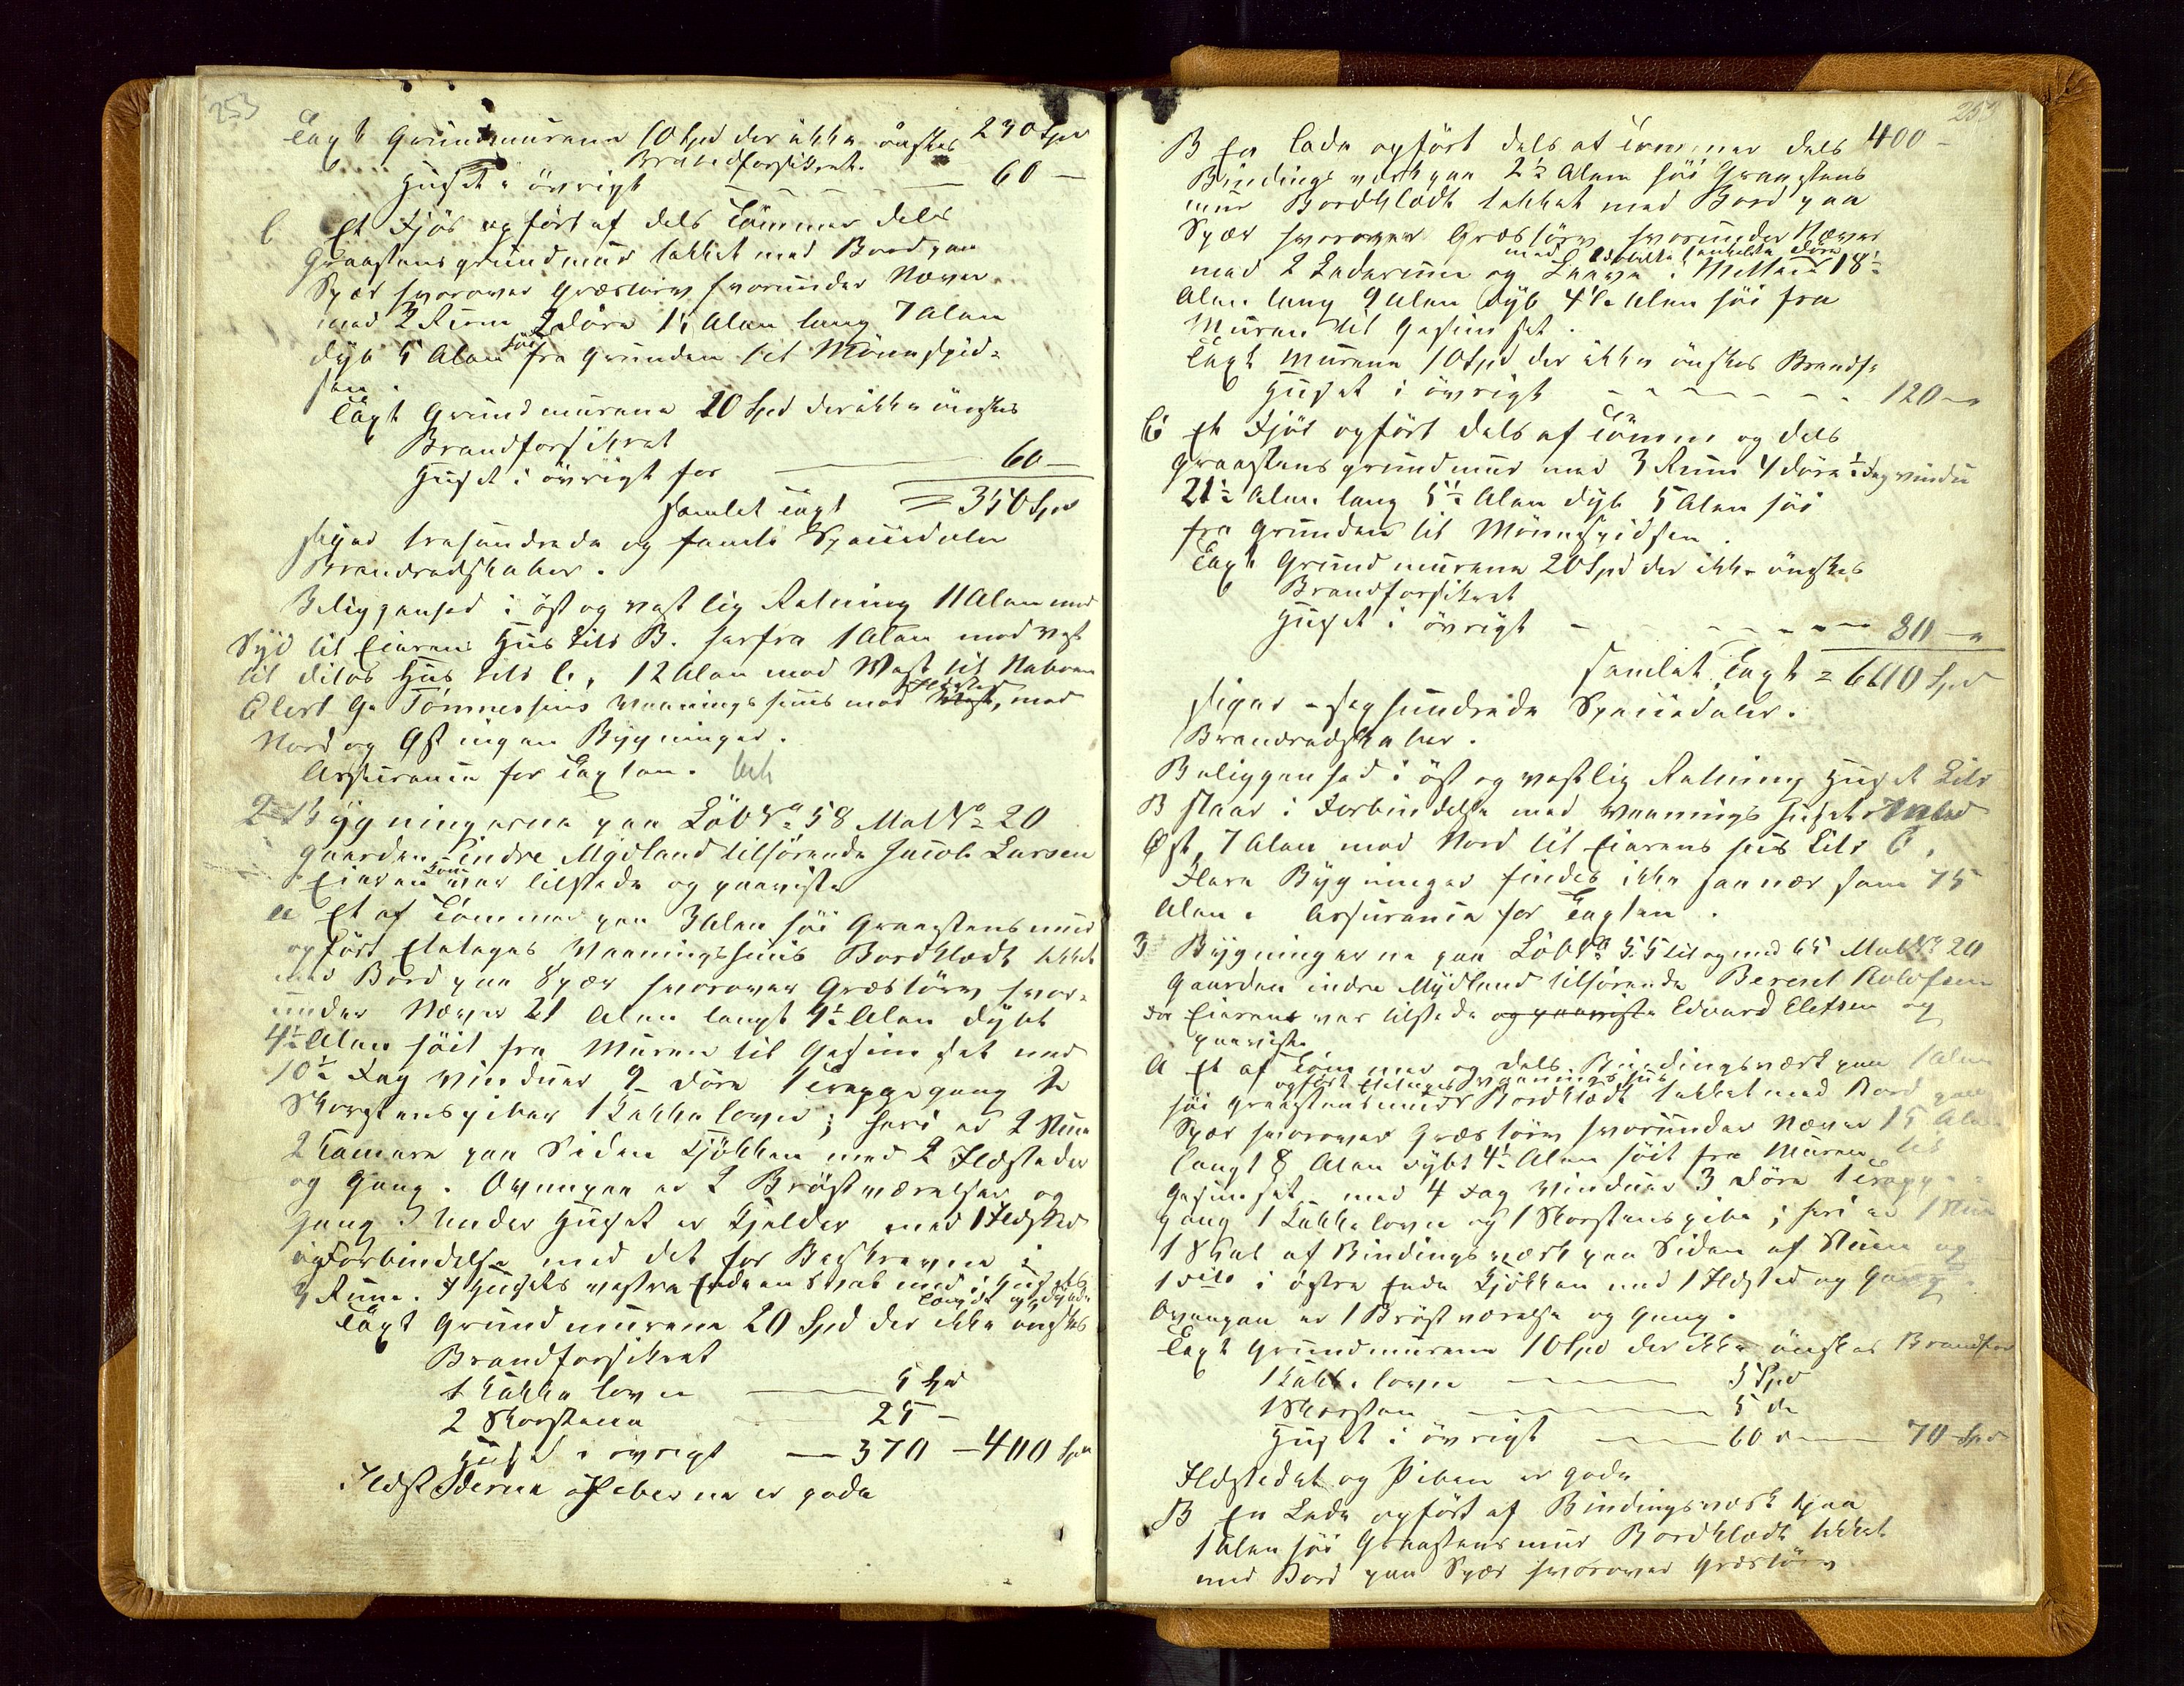 253
Taxt Grundmurene 10 Spd der ikke ønskes 230 Spd
Brandforsikret.
Huset i øvrigt — 60 —
C Et Fjøs opført af dels Tømmer dels
Graastensgrundmur tækket med Bord paa
Spær hvorover Græstørv hvorunder Næver
med 2 Rum 2 Døre 11 Alen lang 7 Alen
dyb 5 Alen høi fra Grunden til Mønnespid-
sen.
Taxt Grundmurene 10 Spd der ikke ønskes
Brandforsikret
Huset i øvrigt for — 60 —
samlet Taxt = 350 Spd
siger trehundrede og femti Speciedaler
Brandredskaber.
Beliggenhed i øst og vestlig Retning 11 Alen mod
Syd til Eierens Hus Litr B. herfra 1 Alen mod vest
til ditos Hus Litr C, 12 Alen mod Vest til Naboen
Elert G. Tønnessens Vaaningshuus med Ildsted, mod
Nord og Øst ingen Bygninger.
Assurance for Taxten.
2 Bygningerne paa Løb No 58 Mat No 20
Gaarden indre Mydland tilhørende Jacob Larsen
Eieren var tilstede og paaviste
A Et af Tømmer paa 3 Alen høi Graastensmur
opført Etetages Vaaningshuus Bordklædt tækket
med Bord paa Spær hvorover Græstørv hvor-
under Næver 21 Alen langt 9½ Alen dybt
4½ Alen høit fra Muren til Gesimset med
10½ Fag Vinduer 9 Døre 1 Trappegang 2
Skorstenspiber 1 Kakkelovn; heri er 2 Stuer
2 Kamere paa Siden Kjøkken med 2 Ildsteder
og Gang. Ovenpaa er 2 Brøstværelser og
Gang. Under Huset er Kjelder med 1 Ildsted
i Forbindelse med det før Beskrevne i
3 Rum. I Husets vestre Ende en Sval med i Husets
Længde og Dybde
Taxt Grundmurene 20 Spd der ikke ønskes
Brandforsikret
1 Kakkelovn — 5 Spd
2 Skorstene 25 —
Huset i øvrigt — 370 — 400 Spd
Ildstederne og Piberne er gode
253
B En Lade opført dels af Tømmer dels 400 —
Bindingsværk paa 2½ Alen høi Graastens
mur Bordklædt tækket med Bord paa
Spær hvorover Græstørv hvorunder Næver
med dobbelte Døre
med 2 Laderum og Laave i Midten 18½
Alen lang 9 Alen dyb 4½ Alen høi fra
Muren til Gesimset.
Taxt Murene 10 Spd der ikke ønskes Brandf.
Huset i øvrigt — 120 —
C Et Fjøs opført dels af Tømmer og dels
Graastensgrundmur med 3 Rum 4 Døre ½ Fag Vindu
21½ Alen lang 5½ Alen dyb 5 Alen høi
fra Grunden til Mønnespidsen.
Taxt Grundmurene 20 Spd der ikke ønskes
Brandforsikret
Huset i øvrigt — 80 —
samlet Taxt = 600 Spd
siger — sexhundrede Speciedaler.
Brandredskaber.
Beliggenhed i øst og vestlig Retning Huset Litr
B staar i Forbindelse med Vaaningshuset
Øst, 7 Alen mod Nord til Eierens Hus Litr C.
Flere Bygninger findes ikke saa nær som 75
Alen. Assurance for Taxten.
3 Bygningerne paa Løb No 55 til og med 65 Mat No 20
Gaarden indre Mydland tilhørende Berent Rolofsen
Eieren var tilstede og paaviste Edvard Elefsen og
paaviste
A Et af Tømmer og dels Bindingsværk paa 1 Alen
opført Etetages Vaaningshus
høi Graastensmur Bordklædt tækket med Bord paa
Spær hvorover Græstørv hvorunder Næver 15 Alen
langt 8 Alen dybt 4½ Alen høit fra Muren til
Gesimset med 4 Fag Vinduer 3 Døre 1 Trappe-
gang 1 Kakkelovn og 1 Skorstenspibe; heri er 1 Stue
1 Sval af Bindingsværk paa Siden af Stuen og
1 dito i østre Ende Kjøkken med 1 Ildsted og Gang.
Ovenpaa er 1 Brøstværelse og Gang.
Taxt Grundmurene 10 Spd der ikke ønskes Brandfor
1 Kakkelovn — 5 Spd
1 Skorsten — 5 do
Huset i øvrigt — 60 — 70 Spd
Ildstedet og Piben er gode
B En Lade opført af Bindingsværk paa
1 Alen høi Graastensmur Bordklædt tækket
med Bord paa Spær hvorover Græstørv